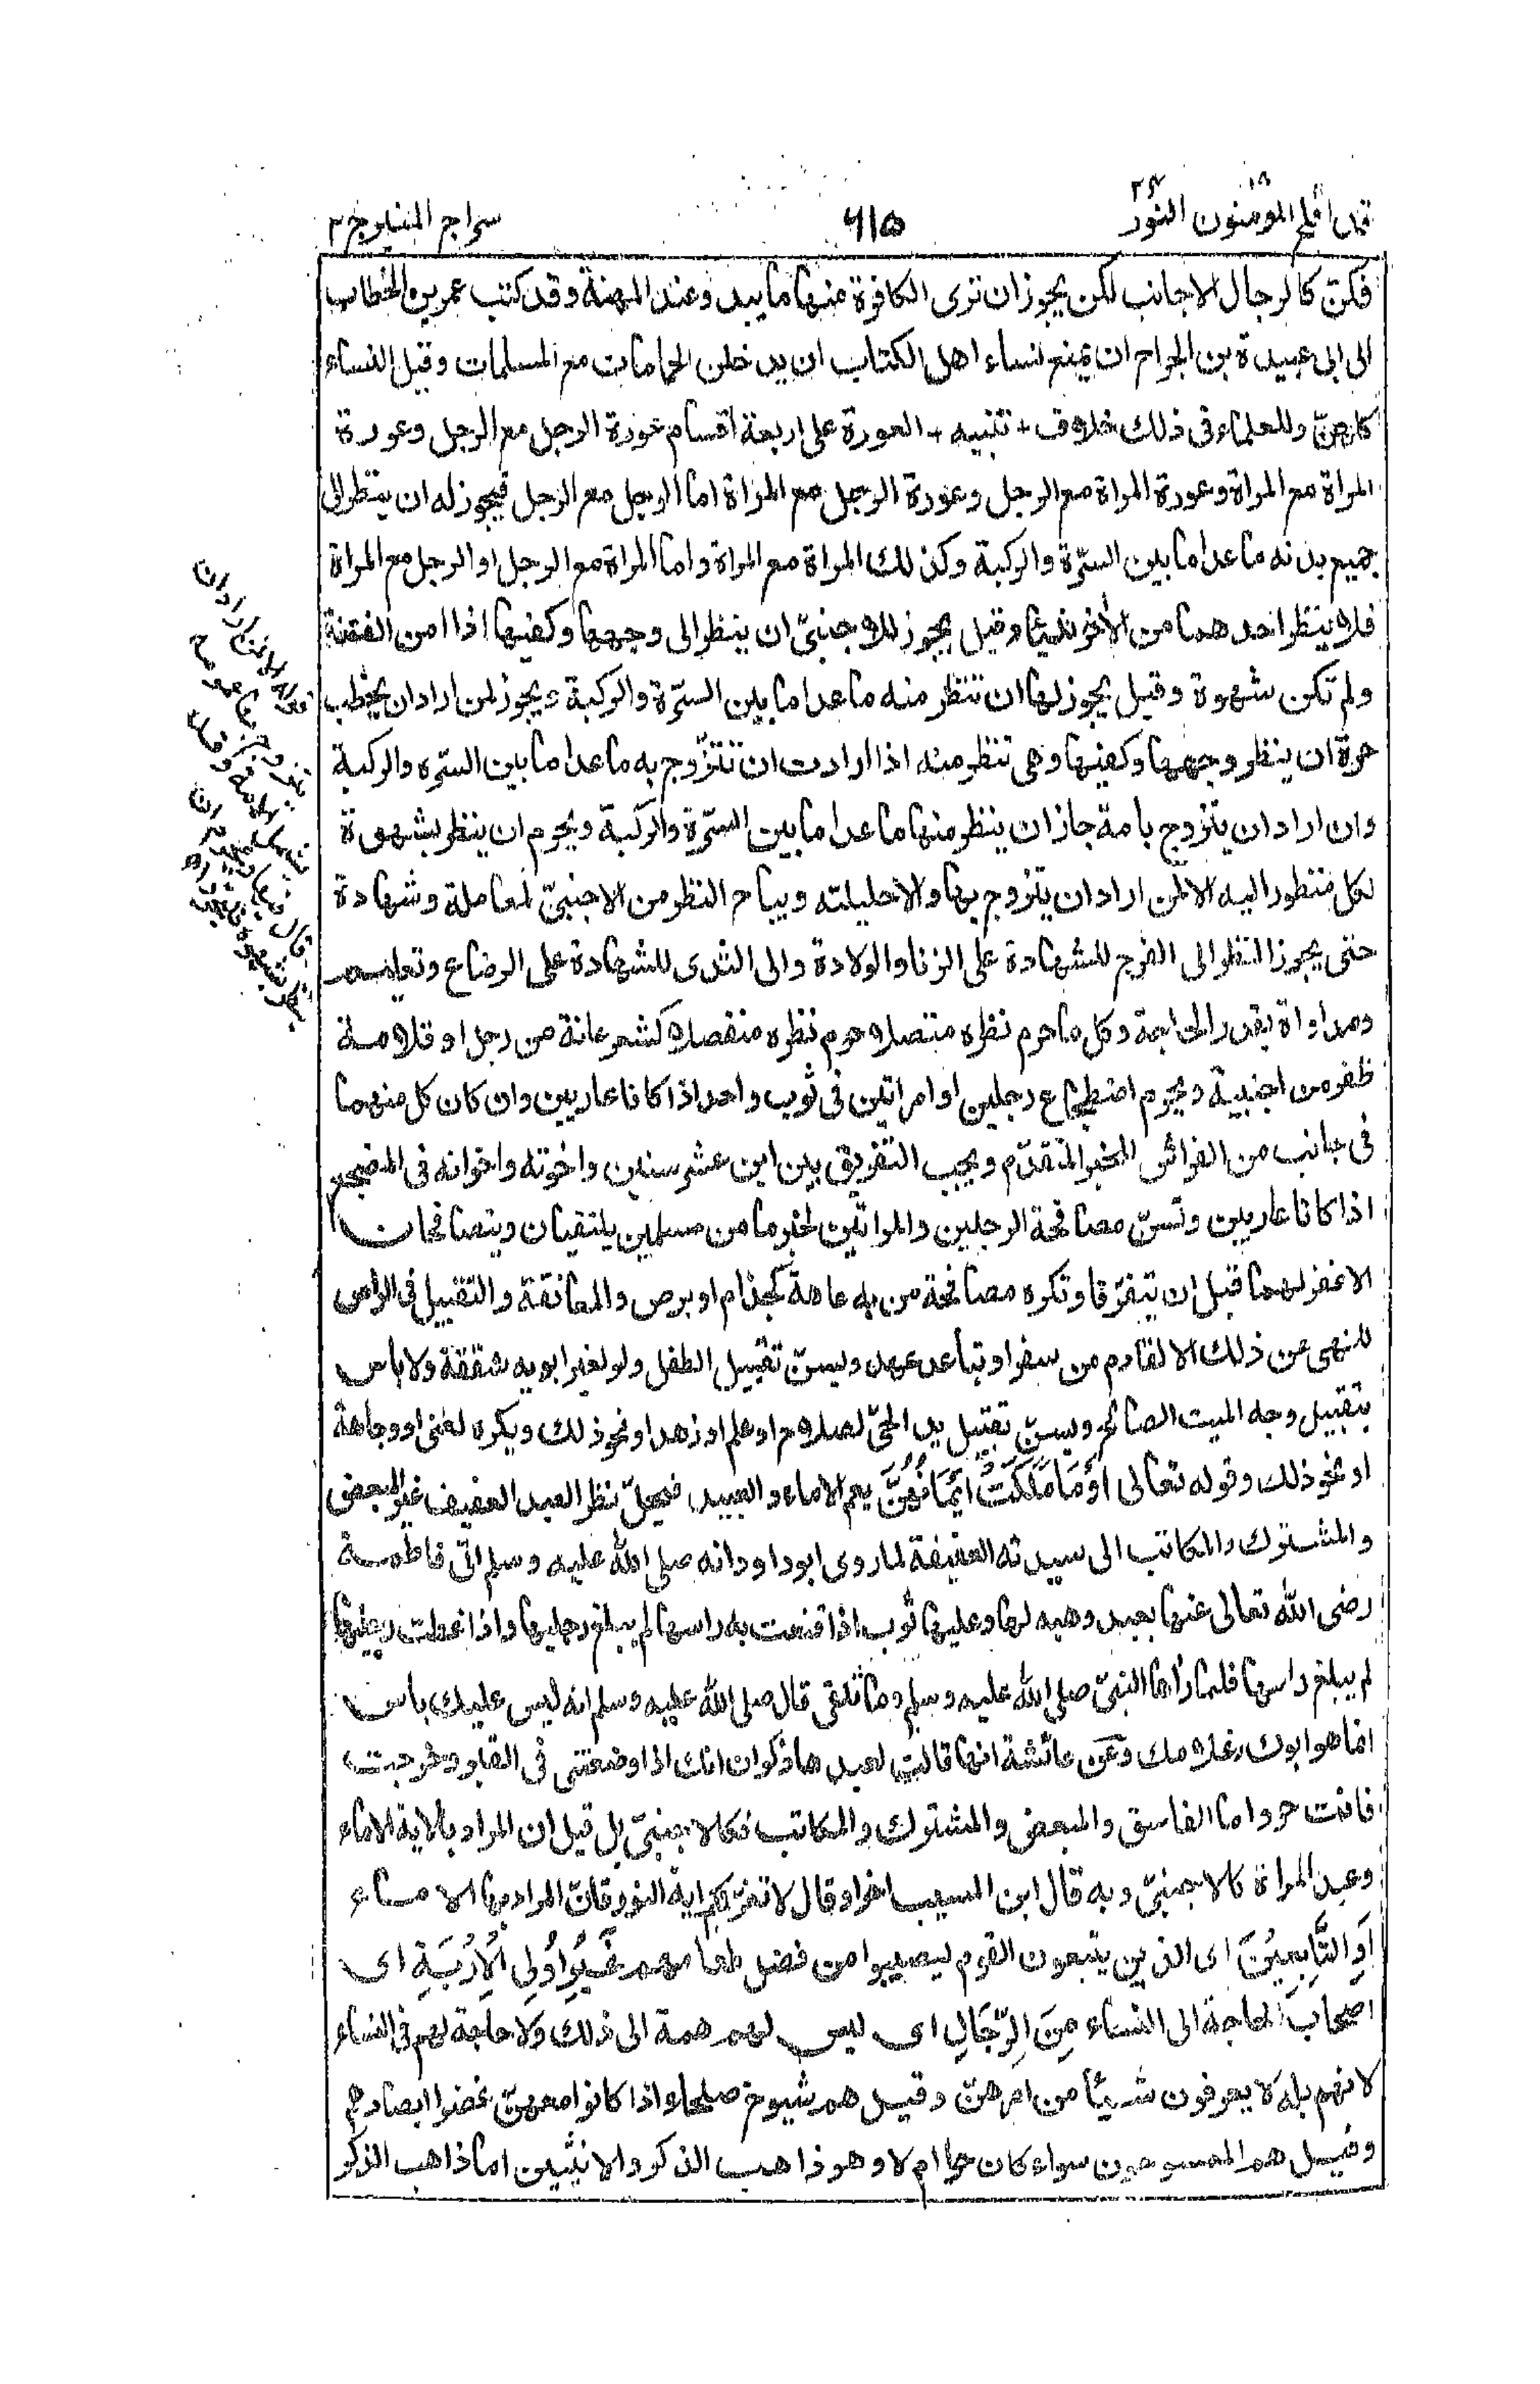 قد افلح المؤمنون النور ٢٤
٦١٥
سراج المنير ج ٢
فكنّ كالرجال الاجانب لكن يجوز ان ترى الكافرة منها ما يبدو عند المهنة وقد كتب عمر بن الخطاب
الى ابى عبيدة بن الجراح ان يمنع نساء اهل الكتاب ان يدخلن الحمامات مع المسلمات وقيل النساء
كلهنّ وللعلماء فى ذلك خلاف + تنبيه + العورة على اربعة اقسام عورة الرجل مع الرجل وعورة
المراة مع المراة وعورة المراة مع الرجل وعورة الرجل مع المراة اما الرجل مع الرجل فيجوز له ان ينظر الى
جميع بدنه ما عدا ما بين السرّة والركبة وكذلك المراة مع المراة واما المراة مع الرجل او الرجل مع المراة
فلا ينظر احدهما من الأخر شيئا وقيل يجوز للاجنبىّ ان ينظر الى وجهها وكفيها اذا امن الفتنة
ولم تكن شهوة وقيل يجوز لها ان تنظر منه ما عدا ما بين السرّة والركبة ويجوز لمن اراد ان يخطب
حرة ان ينظر وجهها وكفيها وهى تنظر منه اذا ارادت ان تتزّوج به ما عدا ما بين السرّه والركبة
وان اراد ان يتزوج بامة جاز ان ينظر منها ما عدا ما بين السرّة والركبة ويحرم ان ينظر بشهوة
لكل منظور اليه الا لمن اراد ان يتزوج بها والا حليلته ويباح النظر من الاجنبىّ لمعاملة وشهادة
حتى يجوز النظر الى الفرج للشهادة على الزنا والولادة والى الثدى للشهادة على الرضاع وتعليم
ومداواة بقدر الحاجة وكل ما حرم نظره متصلا حرم نظره منفصلا كشعر عانة من رجل او قلامة
ظفر من اجنبية ويحرم اضطجاع رجلين او امراتين فى ثوب واحد اذا كانا عاريين وان كان كل منهما
فى جانب من الفراش للخبر المتقدّم ويجب التفريق بين ابن عشر سنين واخوته واخوانه فى المضجع
اذا كانا عاريين وتسنّ مصافحة الرجلين والمراتين لخبر ما من مسلمين يلتقيان ويتصافحان
الا غفر لهما قبل ان يتفرّقا وتكره مصافحة من به عاهة كجذام او برص والمعانقة والتقبيل فى الراس
للنهى عن ذلك الا لقادم من سفر او تباعد عهد ويسنّ تقبيل الطفل ولو لغير ابويه شفقة ولا باس
بتقبيل وجه الميت الصالح ويسنّ تقبيل يد الحىّ لصلاح او علم او زهد او نحو ذلك ويكره لغنى او وجاهة
او نحو ذلك وقوله تعالى اَوْ مَا مَلَكَتْ اَيْمَانُهُنَّ يعم الاماء والعبيد فيحلّ نظر العبد العفيف غير المبعض
والمشترك والمكاتب الى سيدته العفيفة لما روى ابو داود انه صلى الله عليه وسلم اتى فاطمة
رضى الله تعالى عنها بعبد وهبه لها وعليها ثوب اذا قنعت به راسها لم يبلغ رجليها واذا غطت رجليها
لم يبلغ راسها فلما راها النبىّ صلى الله عليه وسلم وما تلقى قال صلى الله عليه وسلم انه ليس عليك باس
انما هو ابوك وغلامك وعن عائشة انها قالت لعبدها ذكوان انك اذا وضعتنى فى القبر وخرجت
فانت حر واما الفاسق والمبعض والمشترك والمكاتب فكالاجنبىّ بل قيل ان المراد بالاية الاماء
وعبد المراة كالاجنبىّ وبه قال ابن المسيب اخرا وقال لا تغرّنكم اية النور فانّ المراد بها الاماء
اَوِ التَّابِعِيْنَ اى الذين يتبعون القوم ليصيبوا من فضل طعامهم غَيْرِ اُولِى الْاِرْبَةِ اى
اصحاب الحاجة الى النساء مِنَ الرِّجَالِ اى ليس لهم همة الى ذلك ولا حاجة لهم فى النساء
لانهم بله لا يعرفون شيئا من امرهنّ وقيل هم شيوخ صلحاء اذا كانوا معهنّ غضوا ابصارهم
وقيل هم الممسوحون سواء كان حرا ام لا وهو ذاهب الذكر والانثيين اما ذاهب الذكر